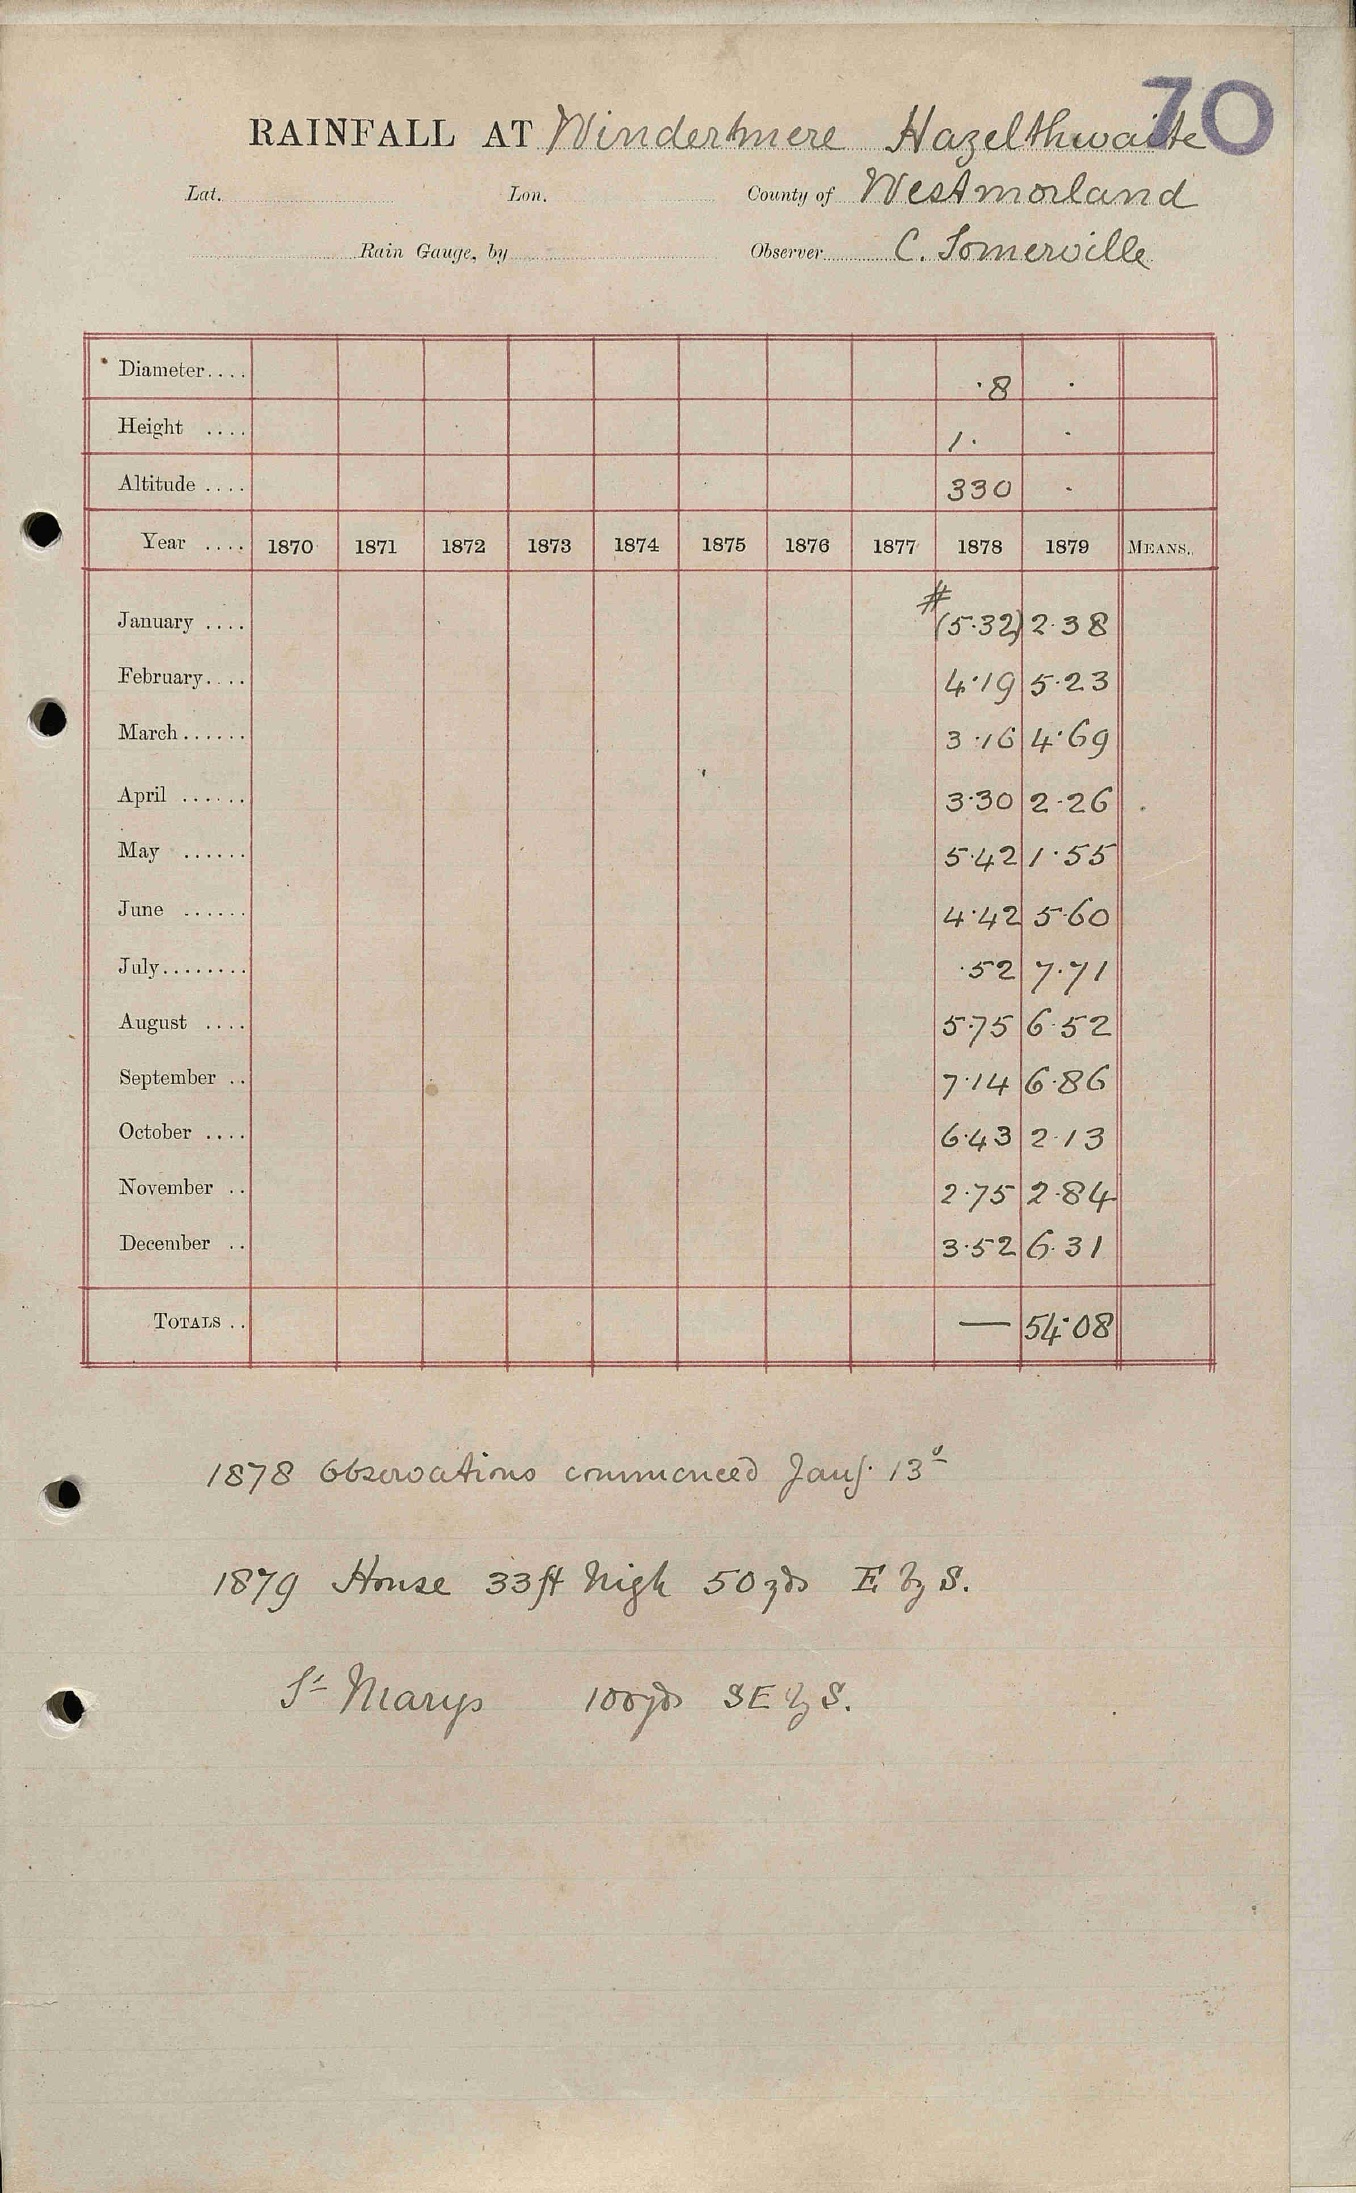 70
RAINFALL AT Windermere Hazelthwaite
Lat. Lon. County of Westmorland
Rain Gauge, by Observer C. Somerville
Diameter.... ·8 ·
Height .... 1. ·
Altitude .... 330 ·
Year .... 1870 1871 1872 1873 1874 1875 1876 1877 1878 1879 MEANS.
#
January .... (5·32) 2·38
February.... 4·19 5·23
March...... 3·16 4·69
April ...... 3·30 2·26
May ...... 5·42 1·55
June ...... 4·42 5·60
July........ ·52 7·71
August .... 5·75 6·52
September .. 7·14 6·86
October .... 6·43 2·13
November .. 2·75 2·84
December .. 3·52 6·31
TOTALS .. — 54·08
1878 Observations commenced Jany. 13
1879 House 33ft high 50 yds E by S.
St Marys 100yds SE by S.